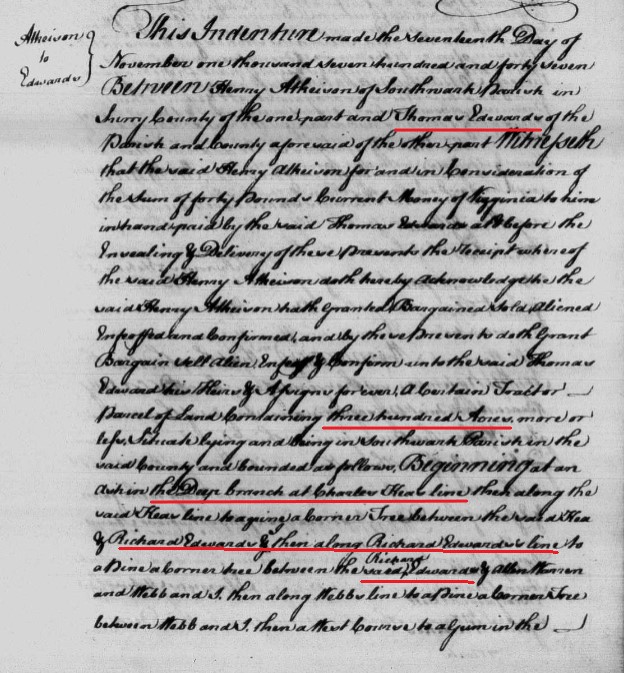 Atkeison
to
Edwards
This Indenture made the Seventeenth Day of
November one thousand Seven hundred and forty Seven
Between Henry Atkeison of Southwark Parish in
Surry County of the one part and Thomas Edwards of the
Parish and County aforesaid of the other part Witnesseth
that the said Henry Atkeison for and in Consideration of
the Sum of forty Pounds Current Money of Virginia to him
in hand paid by the said Thomas Edwards at & before the
Ensealing & Delivery of these Presents the Receipt whereof
the said Henry Atkeison doth hereby Acknowledge he the
said Henry Atkeison hath Granted, Bargained Sold, Aliened
Enfeoffed and Confirmed, and by these Presents doth Grant
Bargain sell Alien, Enfeoff & Confirm unto the said Thomas
Edwards his Heirs & Assigns for ever, A Certain Tract or
Parcel of Land Containing three hundred Acres, more or
less, Situate lying and being in Southwark Parish in the
said County and bounded as follows, Beginning at an
Ash in the Deep branch at Charles Heas line then along the
said Heas line to a pine a Corner Tree between the said Hea
& Richard Edwards & then along Richard Edwards's line to
a Pine a Corner tree between the said Richard Edwards & Allen Warren
and Webb and I. then along Webbs line to a Pine a Corner Tree
between Webb and I. then a West Course to a gum in the